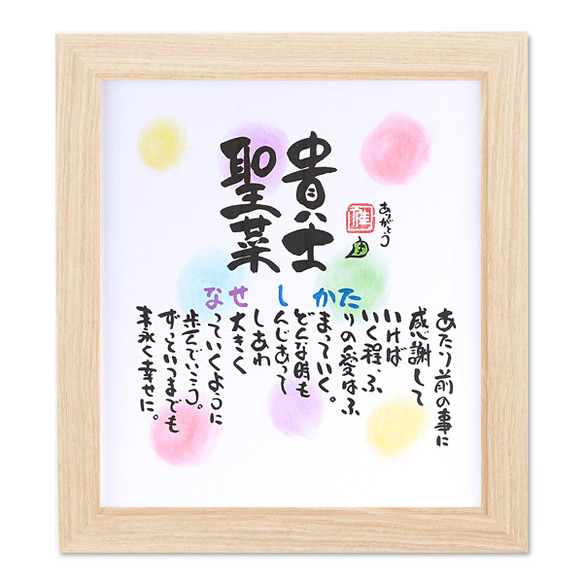 貴士
聖菜
ありがとう
あたり前の事に
感謝して
いけば
いく程、ふ
たりの愛はふ
かまっていく。
どんな時も
しんじあって
しあわ
せ大きく
なっていくように
歩んでいこう。
ずっといつまでも
末永く幸せに。